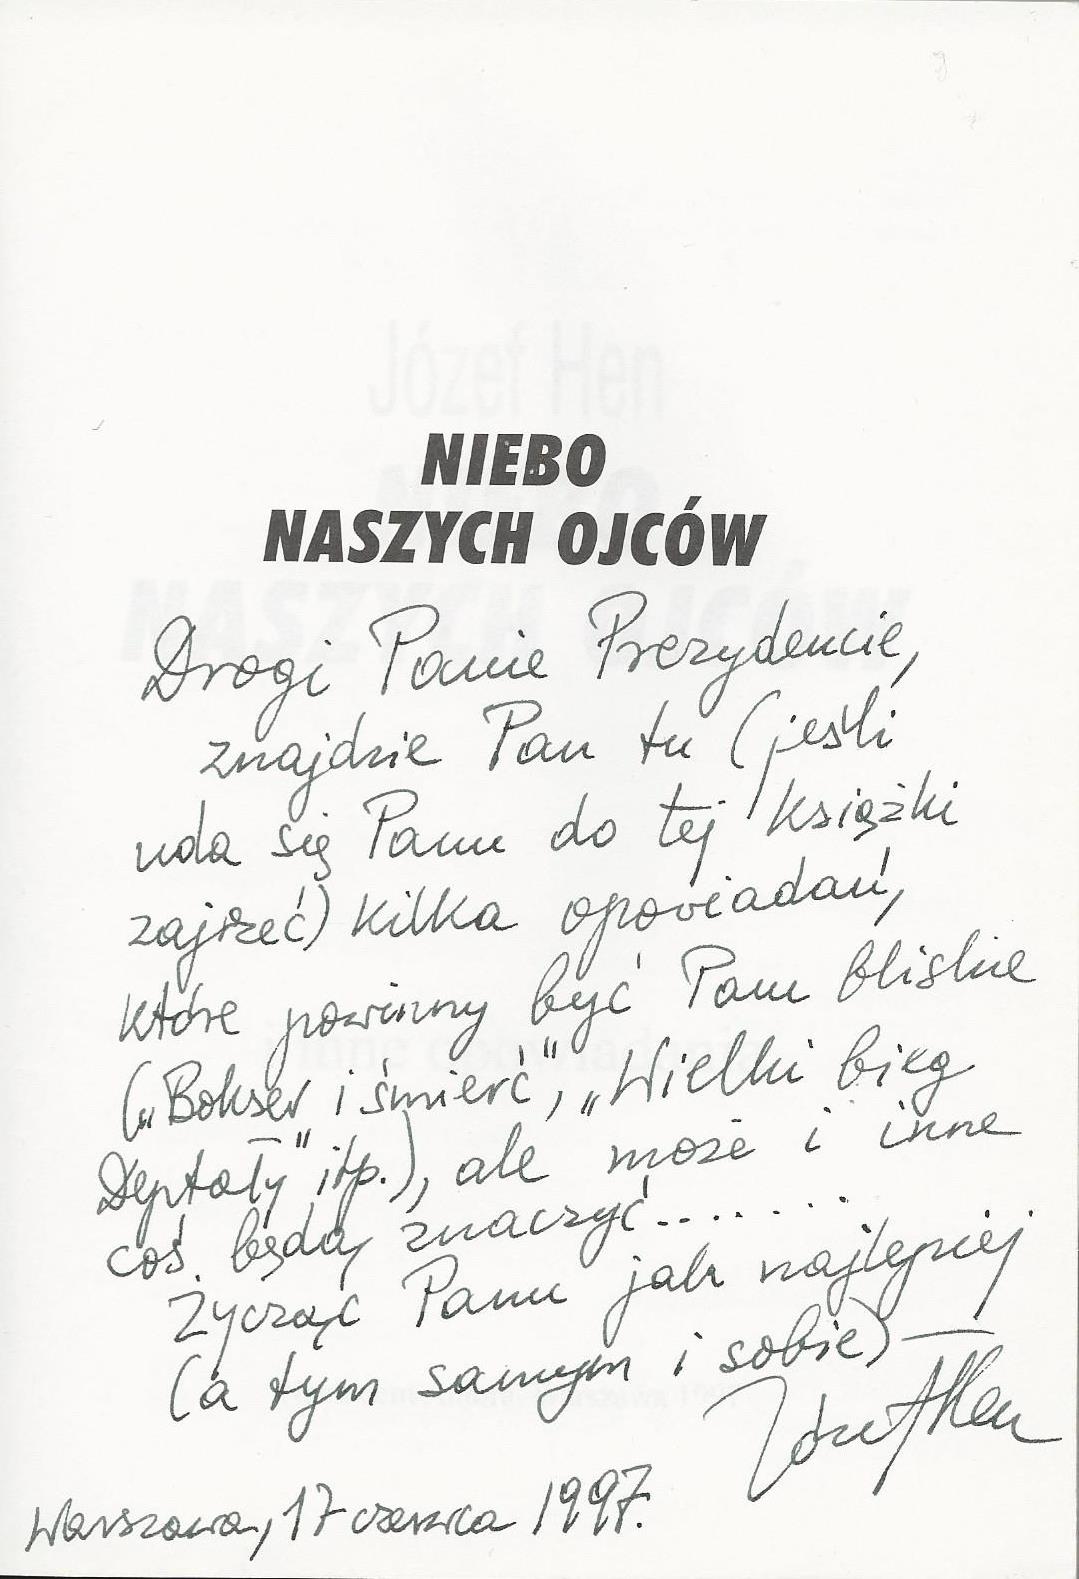 Józef Hen
NIEBO
NASZYCH OJCÓW
Drogi Panie Prezydencie,
znajdzie Pan tu (jeśli
uda się Panu do tej książki
zajrzeć) kilka opowiadań,
które powinny być Panu bliskie
(„Bokser i śmierć”, „Wielki bieg
Deptały” itp.), ale może i inne
coś będą znaczyć.........
Życząc Panu jak najlepiej
(a tym samym i sobie) —
Józef Hen
Warszawa, 17 czerwca 1997.